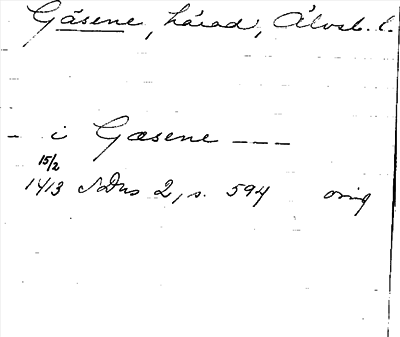 Gäsene, härad, Älvsb. l.
- i Gæsene ---
15/2
1413 SDns 2, s. 594 orig